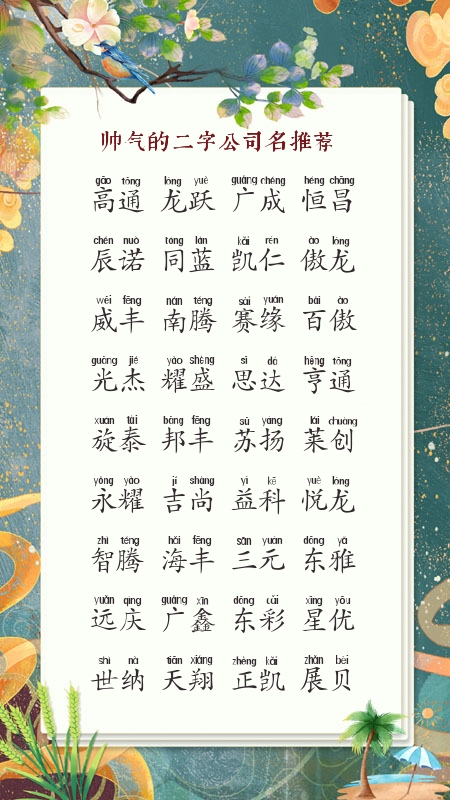 帅气的二字公司名推荐
gāo tōng lóng yuè guǎng chéng héng chāng
高通 龙跃 广成 恒昌
chén nuò tóng lán kǎi rén ào lóng
辰诺 同蓝 凯仁 傲龙
wēi fēng nán téng sài yuán bǎi ào
威丰 南腾 赛缘 百傲
guāng jié yào shèng sī dá hēng tōng
光杰 耀盛 思达 亨通
xuán tài bāng fēng sū yáng lái chuàng
旋泰 邦丰 苏扬 莱创
yǒng yào jí shàng yì kē yuè lóng
永耀 吉尚 益科 悦龙
zhì téng hǎi fēng sān yuán dōng yǎ
智腾 海丰 三元 东雅
yuǎn qìng guǎng xīn dōng cǎi xīng yōu
远庆 广鑫 东彩 星优
shì nà tiān xiáng zhèng kǎi zhǎn bèi
世纳 天翔 正凯 展贝